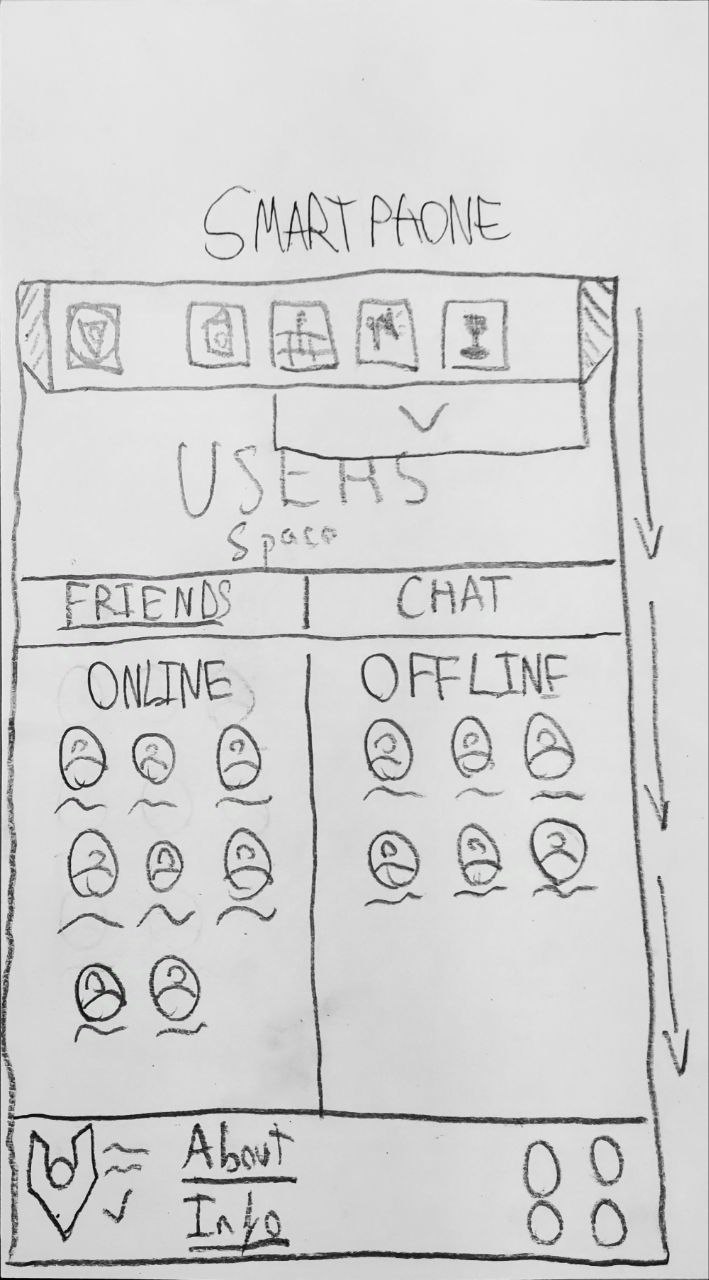 SMARTPHONE
USERS
Space
FRIENDS | CHAT
ONLINE OFFLINE
About
Info